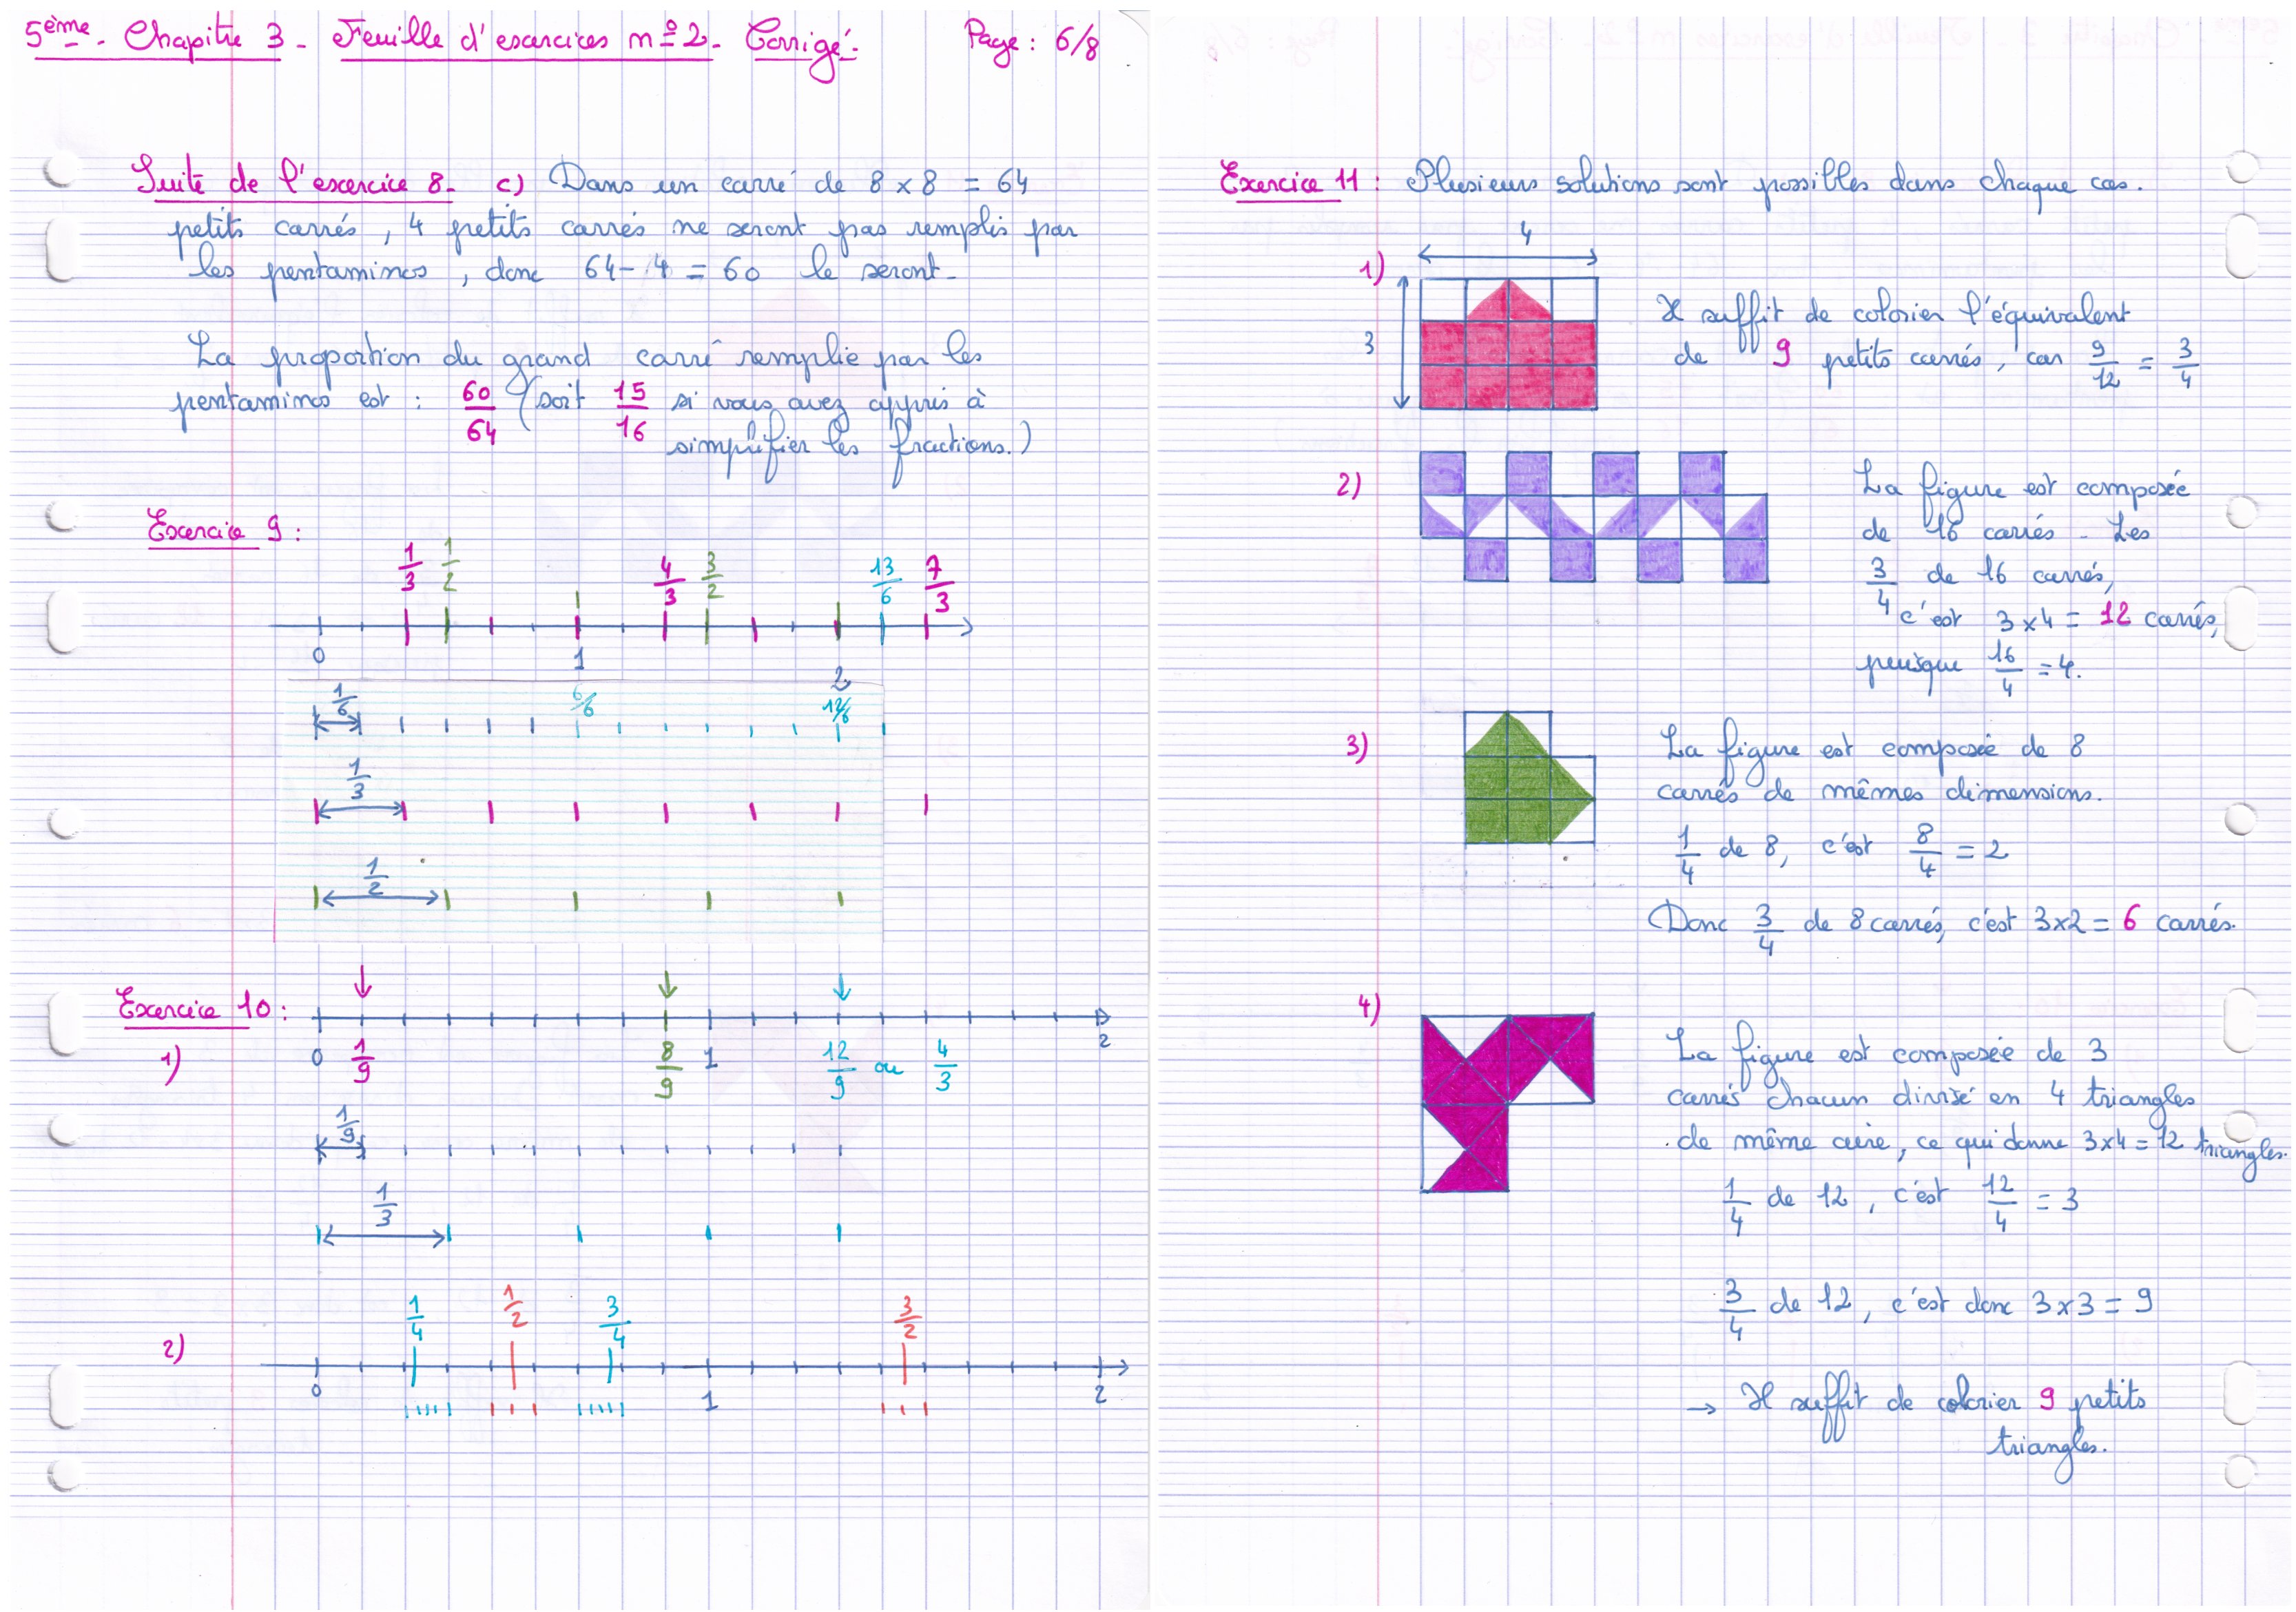 5ème. Chapitre 3. Feuille d'exercices n°2. Corrigé. Page : 6/8
Suite de l'exercice 8. c) Dans un carré de 8 x 8 = 64
petits carrés, 4 petits carrés ne seront pas remplis par
les pentaminos, donc 64 - 4 = 60 le seront.
La proportion du grand carré remplie par les
pentaminos est : 60/64 (soit 15/16 si vous avez appris à
simplifier les fractions.)
Exercice 9 :
1/3 1/2 4/3 3/2 13/6 7/3
0 1 2
1/6 6/6 12/6
1/3
1/2
Exercice 10 :
1) 0 1/9 8/9 1 12/9 ou 4/3 2
1/9
1/3
1/4 1/2 3/4 3/2
2)
0 1 2
Exercice 11 : Plusieurs solutions sont possibles dans chaque cas.
4
1)
3
Il suffit de colorier l'équivalent
de 9 petits carrés, car 9/12 = 3/4
2) La figure est composée
de 16 carrés. Les
3/4 de 16 carrés,
c'est 3x4 = 12 carrés,
puisque 16/4 = 4.
3) La figure est composée de 8
carrés de mêmes dimensions.
1/4 de 8, c'est 8/4 = 2
Donc 3/4 de 8 carrés, c'est 3x2 = 6 carrés.
4)
La figure est composée de 3
carrés chacun divisé en 4 triangles
de même aire, ce qui donne 3x4 = 12 triangles.
1/4 de 12, c'est 12/4 = 3
3/4 de 12, c'est donc 3x3 = 9
→ Il suffit de colorier 9 petits
triangles.